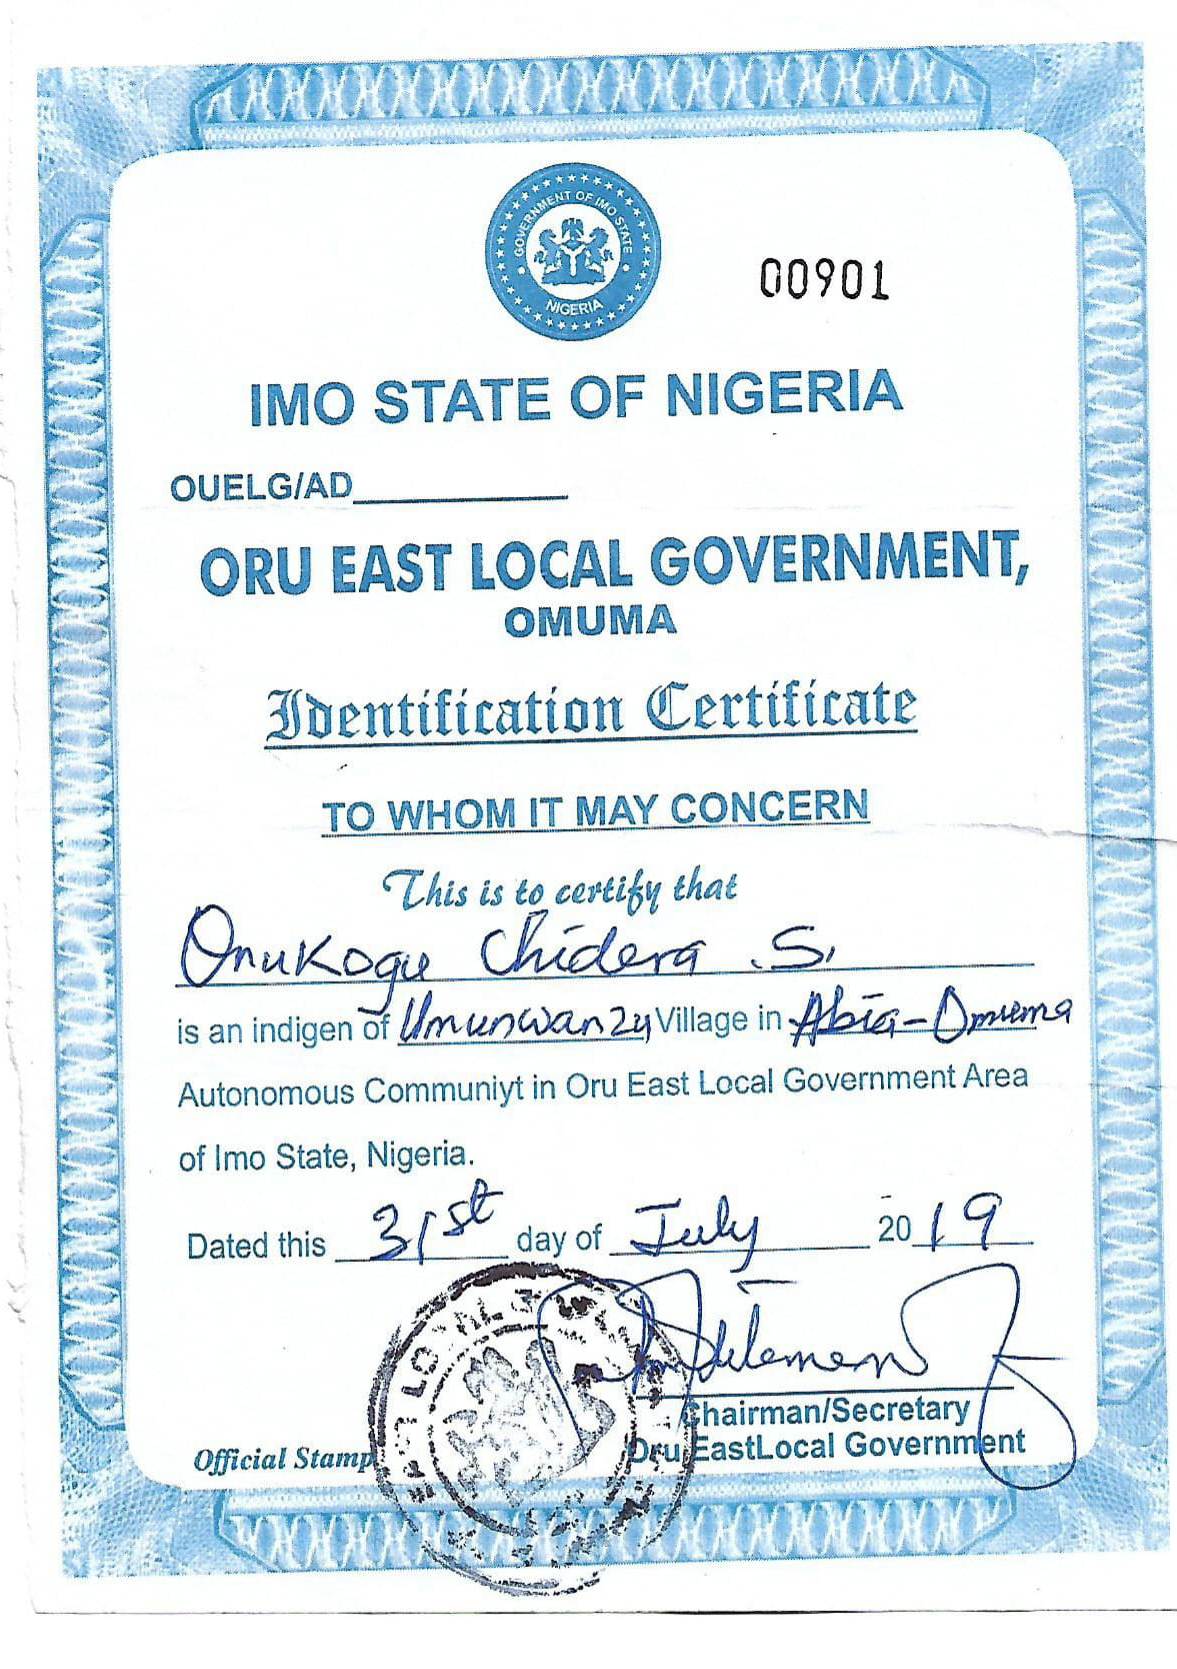 GOVERNMENT OF IMO STATE
NIGERIA
00901
IMO STATE OF NIGERIA
OUELG/AD
ORU EAST LOCAL GOVERNMENT,
OMUMA
Identification Certificate
TO WHOM IT MAY CONCERN
This is to certify that
Onukogu Chidera .S.
is an indigen of Umunwanzu Village in Abia-Omuma
Autonomous Communiyt in Oru East Local Government Area
of Imo State, Nigeria.
Dated this 31st day of July 2019
Chairman/Secretary
Official Stamp
Oru EastLocal Government